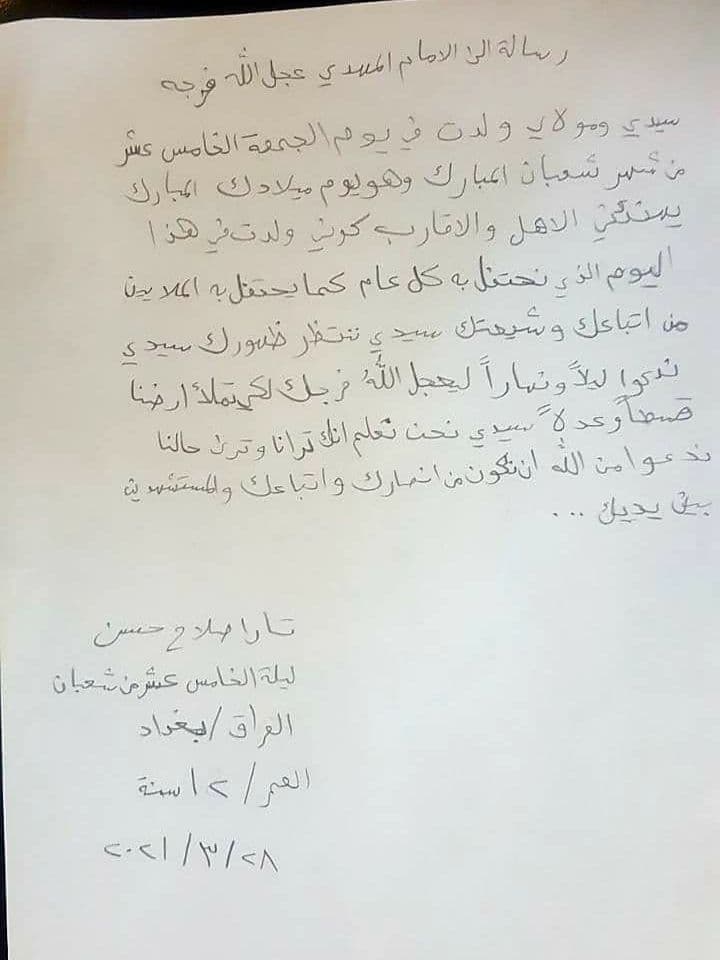 رسالة الى الامام المهدي عجل الله فرجه
سيدي ومولاي ولدت في يوم الجمعة الخامس عشر
من شهر شعبان المبارك وهو يوم ميلادك المبارك
الاهل والاقارب كوني ولدت في هذا
اليوم الذي نحتفل به كل عام كما يحتفل به الملايين
من اتباعك وشيعتك سيدي ننتظر ظهورك سيدي
ندعوا ليلاً ونهاراً ليعجل اللهُ فرجك لكي تملأ ارضنا
قسطاً وعدلاً سيدي نحن نعلم انك ترانا وترى حالنا
ندعوا من الله ان نكون من انصارك واتباعك والمستشهدين
بين يديك ...
تارا صلاح حسن
ليلة الخامس عشر من شعبان
العراق / بغداد
العمر / ١٢ سنة
٢٠٢١/٣/٢٨